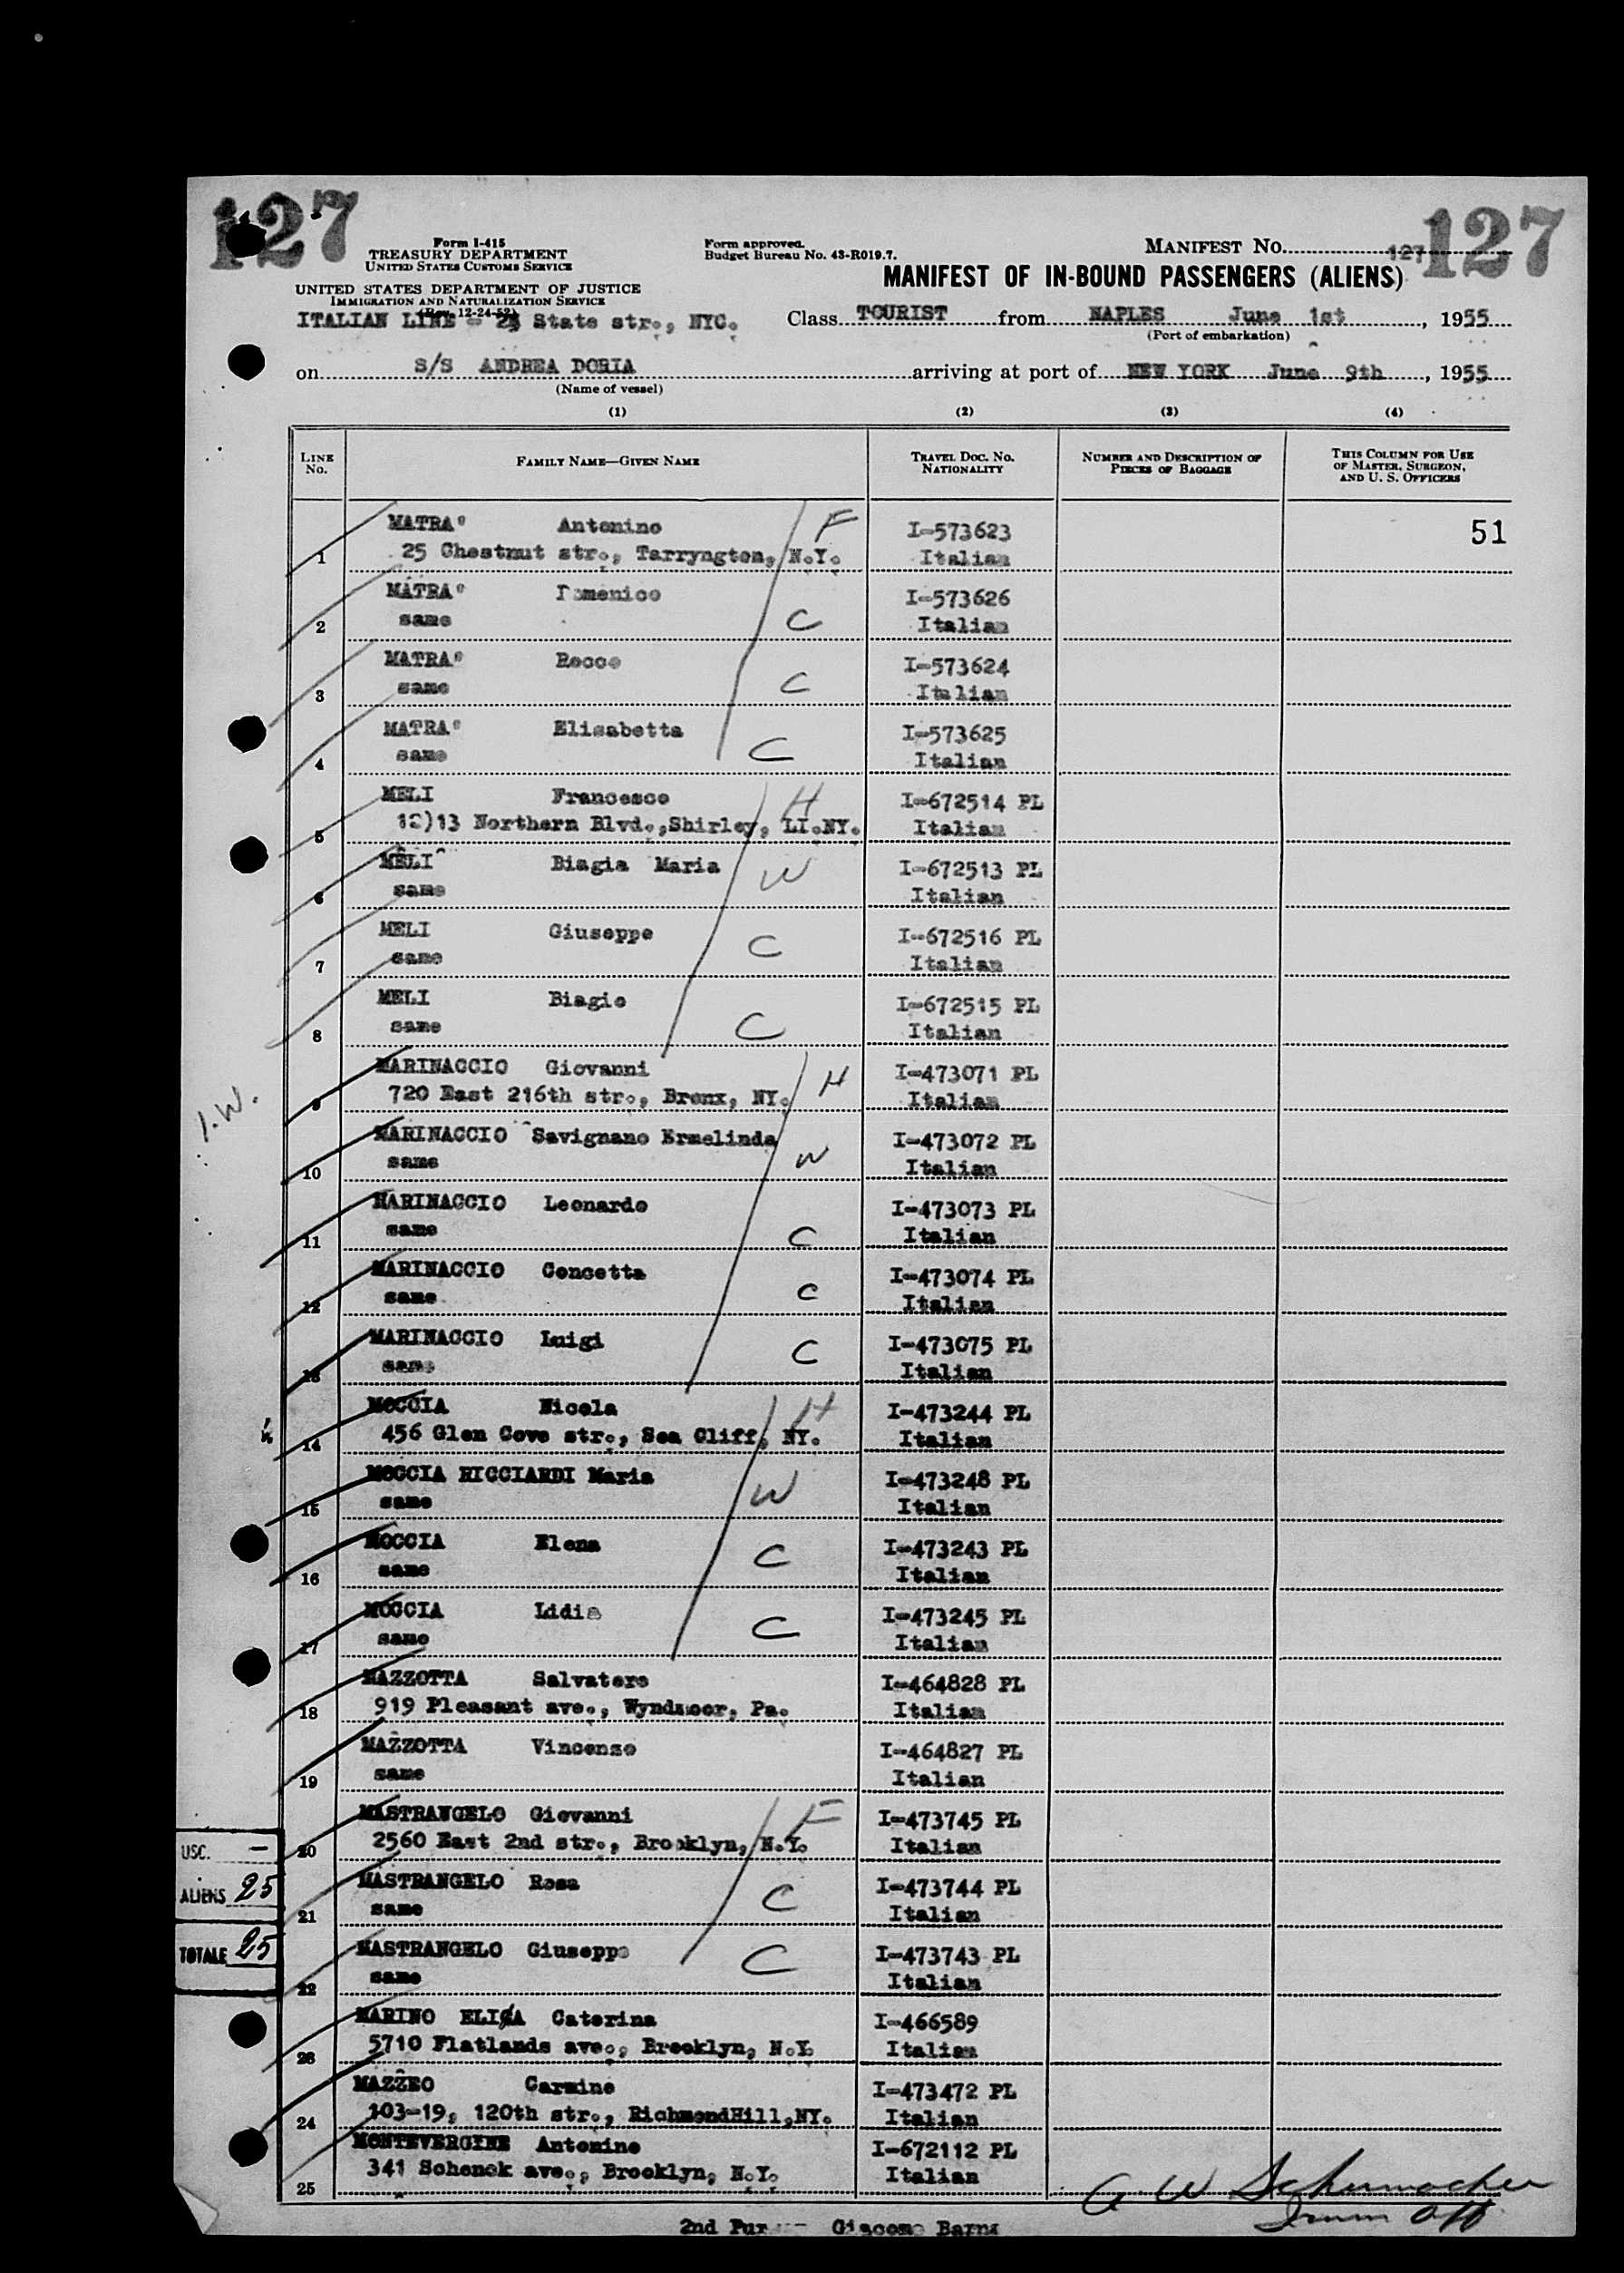 127
127
Form I-415
TREASURY DEPARTMENT
UNITED STATES CUSTOMS SERVICE
Form approved.
Budget Bureau No. 43-R019.7.
MANIFEST No. 127
UNITED STATES DEPARTMENT OF JUSTICE
IMMIGRATION AND NATURALIZATION SERVICE
(Rev. 12-24-52)
MANIFEST OF IN-BOUND PASSENGERS (ALIENS)
ITALIAN LINE - State str., NYC.
Class TOURIST from NAPLES June 1st, 1955
(Port of embarkation)
on S/S ANDREA DORIA arriving at port of NEW YORK June 9th, 1955
(Name of vessel)
(1) (2) (3) (4)
LINE No. FAMILY NAME—GIVEN NAME TRAVEL DOC. NO. NATIONALITY NUMBER AND DESCRIPTION OF PIECES OF BAGGAGE THIS COLUMN FOR USE OF MASTER, SURGEON, AND U. S. OFFICERS
MATRA' Antonino F I-573623 51
1 25 Chestnut str., Tarryngton, N.Y. Italian
MATRA' Domenico I-573626
2 same C Italian
MATRA' Rocco I-573624
3 same C Italian
MATRA' Elisabetta I-573625
4 same C Italian
MELI Francesco H I-672514 PL
5 Northern Blvd., Shirley, LI.NY. Italian
MELI Biagia Maria W I-672513 PL
6 same Italian
MELI Giuseppe C I-672516 PL
7 same Italian
MELI Biagio I-672515 PL
8 same C Italian
MARINACCIO Giovanni H I-473071 PL
9 720 East 216th str., Bronx, NY. Italian
I.W.
MARINACCIO Savignano Ermelinda I-473072 PL
10 same W Italian
MARINACCIO Leonardo I-473073 PL
11 same C Italian
MARINACCIO Concetta I-473074 PL
12 same C Italian
MARINACCIO Luigi I-473075 PL
13 same C Italian
MOCCIA Nicola H I-473244 PL
14 456 Glen Cove str., Sea Cliff, NY. Italian
MOCCIA RICCIARDI Maria I-473248 PL
15 same W Italian
MOCCIA Elena I-473243 PL
16 same C Italian
MOCCIA Lidia I-473245 PL
17 same C Italian
MAZZOTTA Salvatore I-464828 PL
18 919 Pleasant ave., Wyndmoor, Pa. Italian
MAZZOTTA Vincenzo I-464827 PL
19 same Italian
MASTRANGELO Giovanni F I-473745 PL
20 2560 East 2nd str., Brooklyn, N.Y. Italian
USC. —
MASTRANGELO Rosa I-473744 PL
21 same C Italian
ALIENS 25
MASTRANGELO Giuseppe I-473743 PL
22 same C Italian
TOTALE 25
MARINO ELIA Caterina I-466589
23 5710 Flatlands ave., Brooklyn, N.Y. Italian
MAZZEO Carmine I-473472 PL
24 103-19, 120th str., RichmondHill,NY. Italian
MONTEVERGINE Antonino I-672112 PL
25 341 Schenck ave., Brooklyn, N.Y. Italian
A W Schumacher
Imm Off
2nd Giacomo